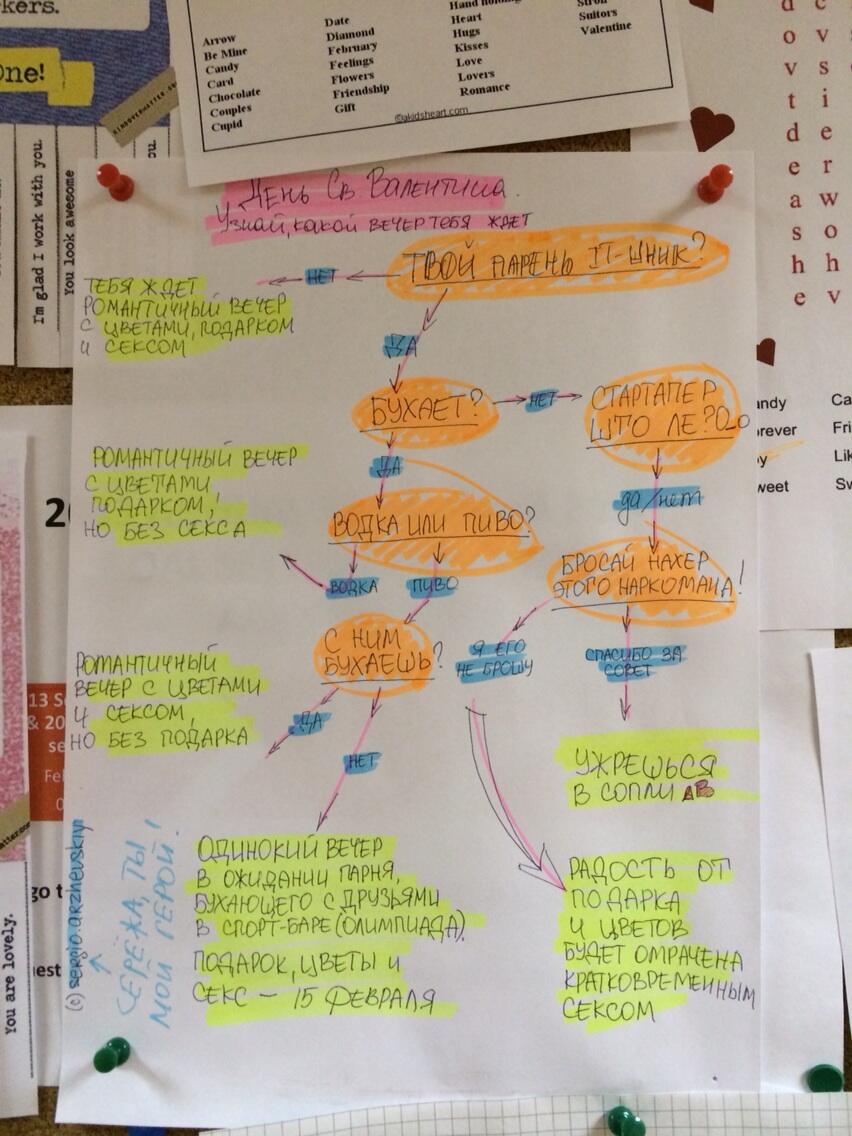 kers.
One!
Arrow
Be Mine
Candy
Card
Chocolate
Couples
Cupid
Date
Diamond
February
Feelings
Flowers
Friendship
Gift
Heart
Hugs
Kisses
Love
Lovers
Romance
Suitors
Valentine
©akidsheart.com
I'm glad I work with you.
You look awesome
ou.
d
o
v
t
d
e
a
s
h
e
c
v
s
i
e
r
w
o
h
v
День Св. Валентина.
Узнай, какой вечер тебя ждет
ТВОЙ ПАРЕНЬ IT-ШНИК?
НЕТ
ТЕБЯ ЖДЕТ
РОМАНТИЧНЫЙ ВЕЧЕР
С ЦВЕТАМИ, ПОДАРКОМ
И СЕКСОМ
ДА
БУХАЕТ?
НЕТ
СТАРТАПЕР
ШТО ЛЕ?
ДА
да/нет
РОМАНТИЧНЫЙ ВЕЧЕР
С ЦВЕТАМИ,
ПОДАРКОМ,
НО БЕЗ СЕКСА
ВОДКА ИЛИ ПИВО?
ВОДКА
ПИВО
БРОСАЙ НАХЕР
ЭТОГО НАРКОМАНА!
С НИМ
БУХАЕШЬ?
Я ЕГО
НЕ БРОШУ
СПАСИБО ЗА
СОВЕТ
РОМАНТИЧНЫЙ
ВЕЧЕР С ЦВЕТАМИ
И СЕКСОМ,
НО БЕЗ ПОДАРКА
ДА
НЕТ
УЖРЕШЬСЯ
В СОПЛИ
ОДИНОКИЙ ВЕЧЕР
В ОЖИДАНИИ ПАРНЯ,
БУХАЮЩЕГО С ДРУЗЬЯМИ
В СПОРТ-БАРЕ (ОЛИМПИАДА).
ПОДАРОК, ЦВЕТЫ И
СЕКС – 15 ФЕВРАЛЯ
РАДОСТЬ ОТ
ПОДАРКА
И ЦВЕТОВ
БУДЕТ ОМРАЧЕНА
КРАТКОВРЕМЕННЫМ
СЕКСОМ
(c) sergio.arzhevskiy
СЕРЁЖА, ТЫ
МОЙ ГЕРОЙ!
andy
orever
y
weet
Ca
Fri
Lik
Sw
13 S
& 20
se
Fe
go t
est
You are lovely.